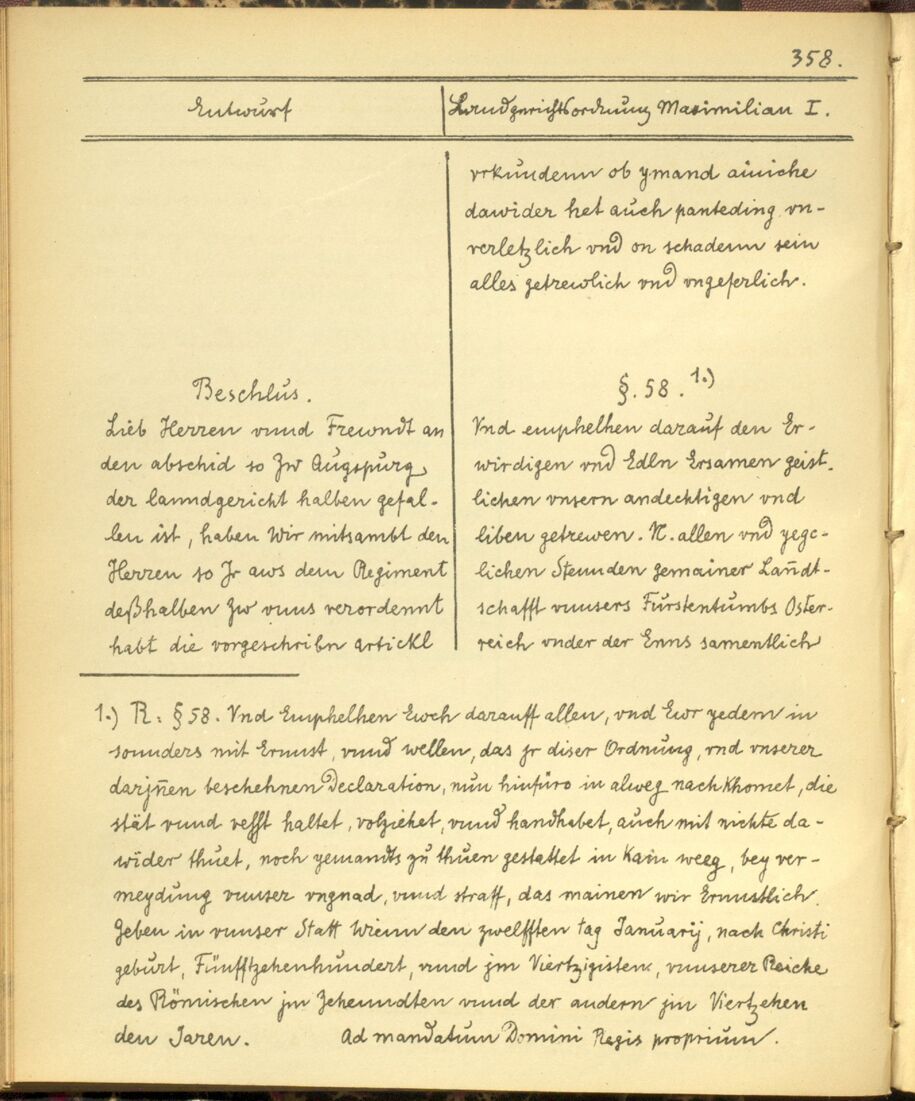 358.
Entwurf
Landgerichtsordnung Maximilian I.
vrkundenn ob ymand ainiche
dawider het auch panteding vn-
verletzlich vnd on schadenn sein
alles getrewlich vnd vngeferlich.
Beschlus.
Lieb Herren vnnd Frewndt an
den abschid so Zw Augspurg
der lanndgericht halben gefal-
len ist, haben Wir mitsambt den
Herren so Jr aws dem Regiment
deßhalben Zw vnns verordennt
habt die vorgeschribn artickl
§. 58. 1.)
Vnd emphelhen darauf den Er-
wirdigen vnd Edln Ersamen geist-
lichen vnsern andechtigen vnd
liben getrewen. N. allen vnd yege-
lichen Stennden gemainer Lañdt-
schafft vnnsers Furstentumbs Oster-
reich vnder der Enns samentlich
1.) R: § 58. Vnd Emphelhen Ewch darauff allen, vnd Ewr yedem in
sonnders mit Ernnst, vnnd wellen, das jr diser Ordnung, vnd vnserer
darjñen beschehnen Declaration, nun hinfüro in alweg nachkhomet, die
stät vnnd vesst haltet, volziehet, vnnd handhabet, auch mit nichte da-
wider thuet, noch yemandts zu thuen gestattet in Kain weeg, bey ver-
meydung vnnser vngnad, vnnd straff, das mainen wir Ernnstlich.
Geben in vnnser Statt Wienn den zwelfften tag Januarij, nach Christi
geburt, Fünfftzehenhundert, vnnd jm Viertzigisten, vnnserer Reiche
des Römischen jm Zehenndten vnnd der andern jm Viertzehen
den Jaren. Ad mandatum Domini Regis proprium.